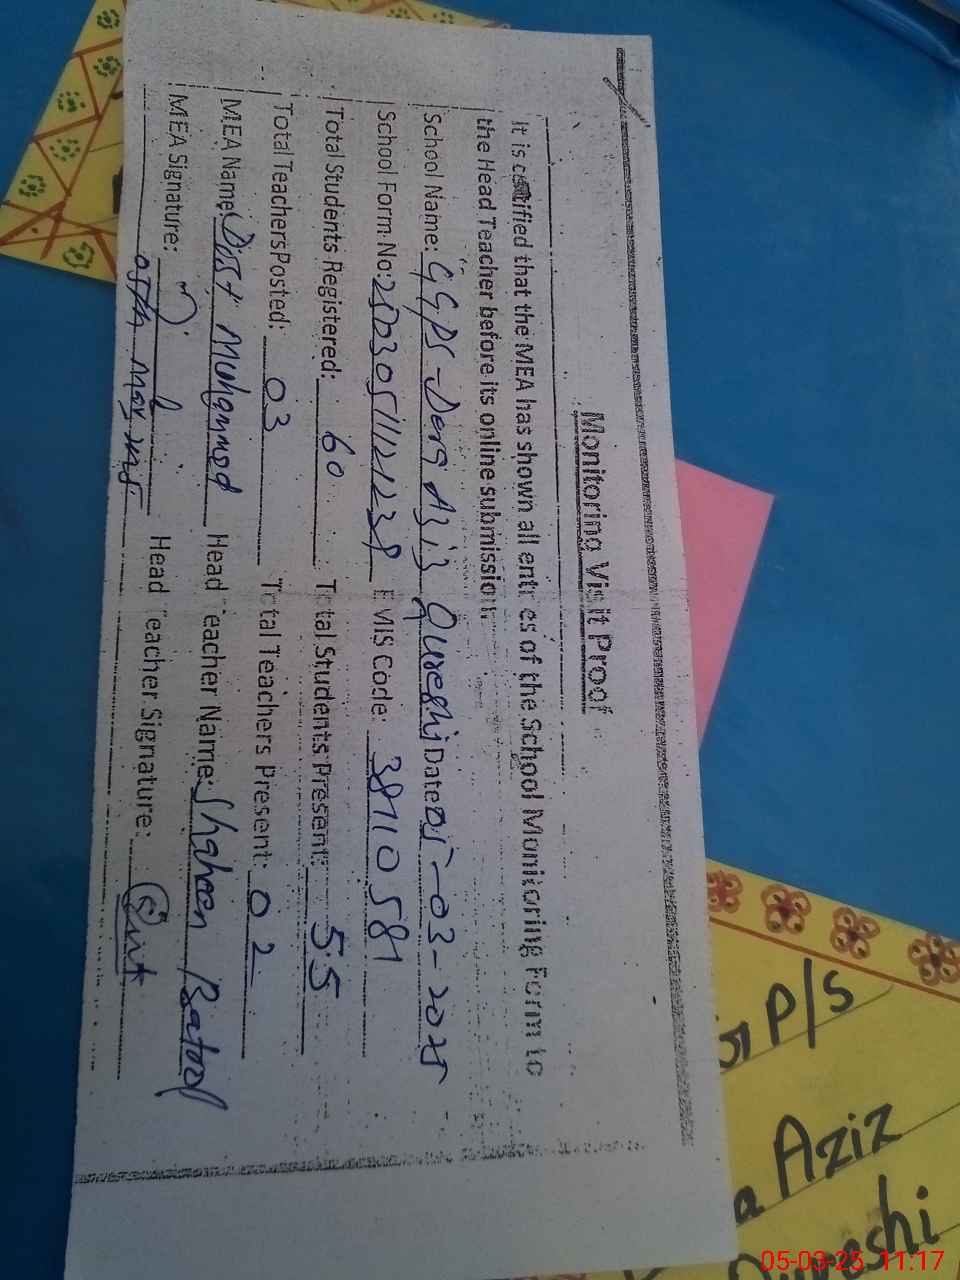 Monitoring Visit Proof
It is certified that the MEA has shown all entries of the School Monitoring Form to
the Head Teacher before its online submission.
School Name: GGPS-Dera Aziz Qureshi Date: 05-03-2025
School Form No: EMIS Code: 38710581
Total Students Registered: 60 Total Students Present: 55
Total Teachers Posted: 03 Total Teachers Present: 02
MEA Name: Dist Muhammad Head Teacher Name: Shaheen Batool
MEA Signature: Head Teacher Signature:
P/S
Aziz
05-03-25 11:17